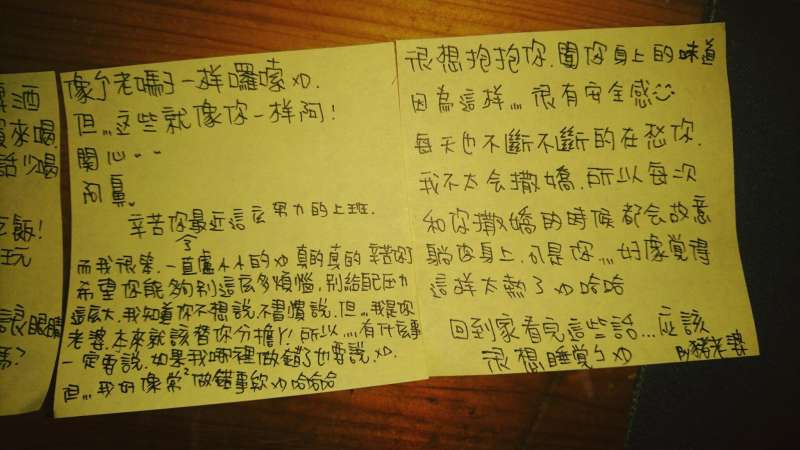 酒
來喝
話少喝
飯!
玩
眼睛
嗎?
像个老媽子一样囉嗦XD.
但,,,這些就像你一样阿!
関心~~
阿鼻。
辛苦你最近這么努力的上班.
而我很笨.一直盧小小的XD真的真的辛苦你了
希望你能夠別這広多煩惱,別給自己压力
這広大.我知道你不想說.不習慣說.但,,,我是你
老婆.本來就該替你分擔ㄚ!所以,,,,有什広事
一定要說.如果我哪裡做錯了也要說.XD.
但,,,我好像常²做錯事欸XD哈哈哈
很想抱抱你.聞你身上的味道
因為這样,,,,很有安全感☺
每天也不斷不斷的在愁你.
我不太会撒嬌.所以每次
和你撒嬌的時候都会故意
躺你身上.可是你,,,,好像覺得
這样太熱了XD哈哈
回到家看完這些話...应該
很想睡覚ㄅXD
By豬老婆